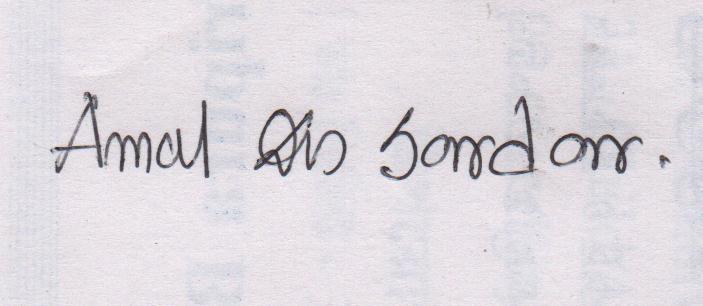 Amal Das Sardar.